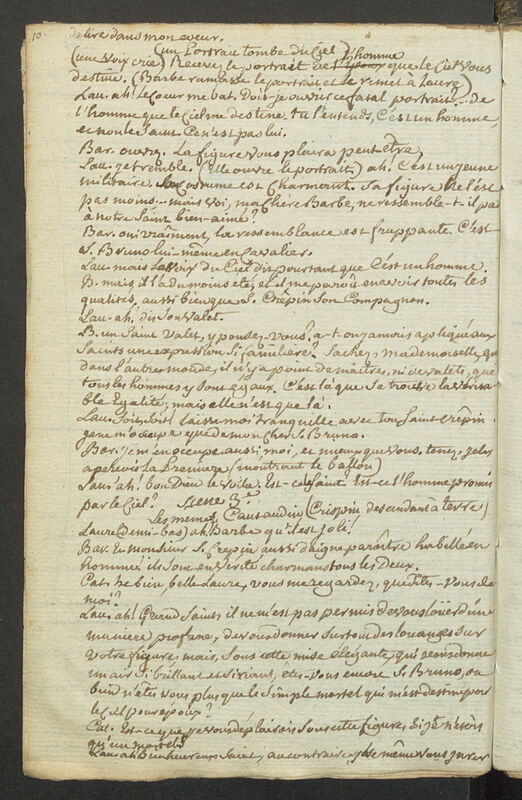 10
de lire dans mon coeur.
(un Portrait tombe du Ciel)
(une voix crie) Recevez le portrait de l'homme que le Ciel vous
destine. (Barbe ramasse le portrait et le remet à Laure)
Lau. ah! le coeur me bat. Dois-je ouvrir ce fatal portrait... De
l'homme que le Ciel me destine, tu l'entends, C'est un homme,
et non le Saint. Ce n'est pas lui.
Bar. ouvrez. La figure vous plaira peut être.
Lau. je tremble. (Elle ouvre le portrait) ah! C'est un jeune
militaire. Son Costume est Charmant. Sa figure ne l'est
pas moins... mais voi, ma chère Barbe, ne ressemble-t-il pas
à notre Saint bien-aimé?
Bar. oui vraiment, la ressemblance est frappante. C'est
S. Bruno lui-même en Cavalier.
Lau. mais la voix du Ciel dit pourtant que C'est un homme.
B. mais, il l'a du moins été, et il me paroît en avoir toutes les
qualités, aussi bien que S. Crêpin Son Compagnon.
Lau. ah! dis Son valet.
B. un Saint valet, y pensez-vous? a-t-on jamais appliqué aux
Saints une expression si familière? Sachez, mademoiselle, que
dans l'autre monde, il n'y a point de maîtres, ni de valets, que
tous les hommes y sont égaux. C'est là que se trouve la vérita
ble Egalité, mais elle n'est que là.
Lau. Soit, Soit! laisse moi tranquille avec ton Saint Crêpin
je ne m'occupe que de mon cher S. Bruno.
Bar. je m'en occupe aussi moi, et mieux que vous, tenez, je les
apercois la Première (montrant le ballon)
Lau. ah! bon Dieu le voila. Est-ce le Saint? Est-ce l'homme promis
par le Ciel?
Scene 3e
Les memes, Cataudin (Crispin descendant à terre)
Laure (demi-bas) ah! Barbe qu'il est joli!
Bar. Et monsieur S. Crepin aussi daigne paroître habillé en
homme! ils sont en vérité charmans tous les Deux.
Cat. he bien, belle Laure, vous me regardez, que dites-vous de
moi?
Lau. ah! Grand Saint, il ne m'est pas permis de vous loüer d'une
maniere profane, de vous donner surtout des louanges sur
votre figure, mais, sous cette mise élégante, qui vous donne
un air si brillant et si riant, êtes-vous encore S. Bruno, ou
bien n'êtes vous plus que le simple mortel qui m'est destiné par
le Ciel pour epoux?
Cat. Est-ce que je vous déplairois sous cette figure, si je n'étois
qu'un mortel?
Lau. ah! Bienheureux Saint, au contraire, je